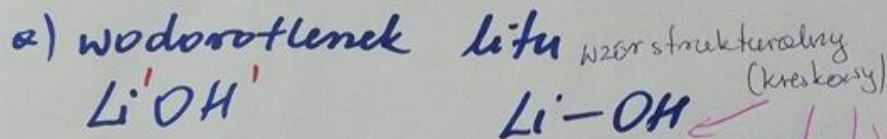 a) wodorotlenek litu wzór strukturalny
(kreskowy)
Li'OH' Li-OH